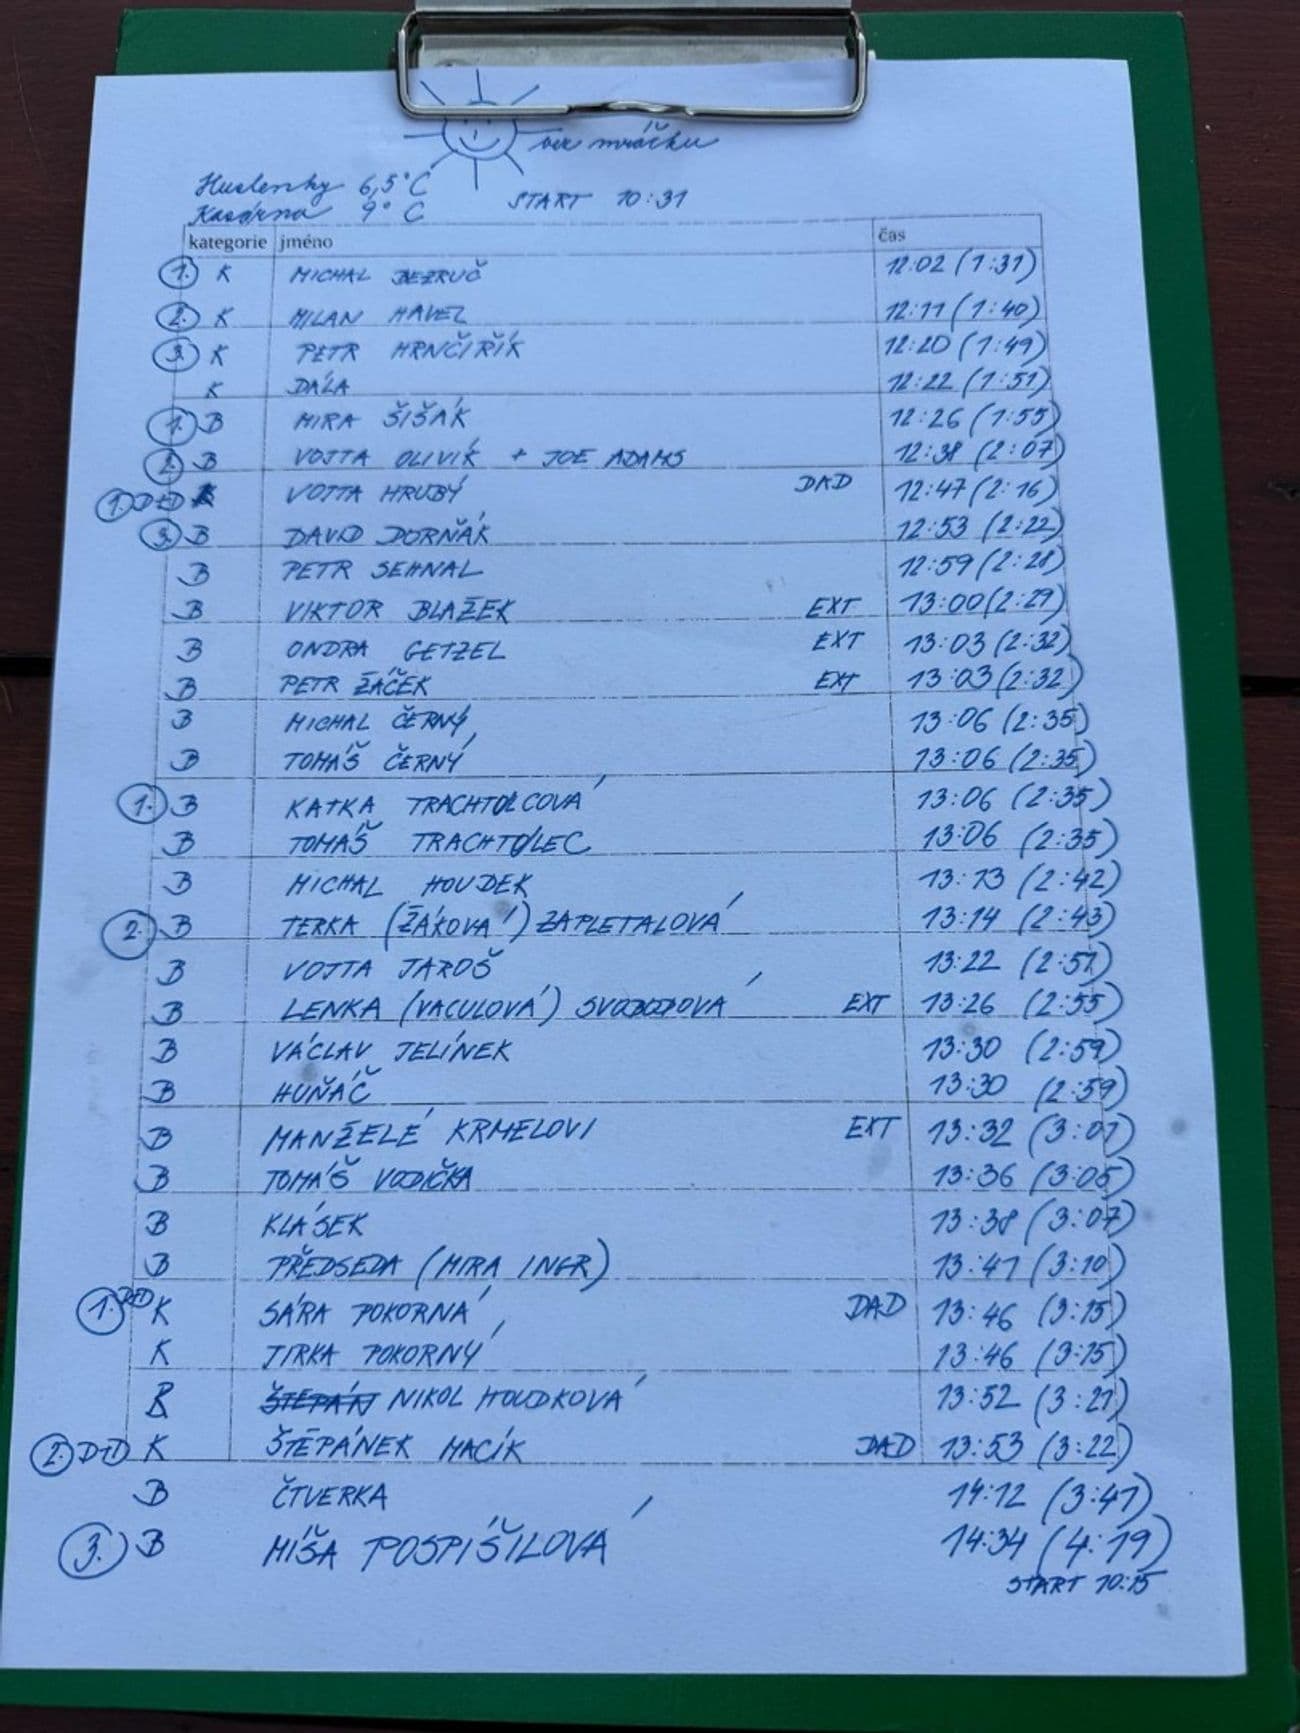 bez mráčku
Huslenky 6,5°C
Kasárna 9°C START 10:31
kategorie jméno čas
1. K MICHAL BEZRUČ 12:02 (1:31)
2. K MILAN HAVEL 12:11 (1:40)
3. K PETR HRNČIŘÍK 12:20 (1:49)
K DÁLA 12:22 (1:51)
1. B MIRA ŠIŠÁK 12:26 (1:55)
2. B VOJTA OLIVÍK + JOE ADAMS 12:38 (2:07)
1. DAD K VOJTA HRUBÝ DAD 12:47 (2:16)
3. B DAVID DORŇÁK 12:53 (2:22)
B PETR SEHNAL 12:59 (2:28)
B VIKTOR BLAŽEK EXT 13:00 (2:29)
B ONDRA GETZEL EXT 13:03 (2:32)
B PETR ŽÁČEK EXT 13:03 (2:32)
B MICHAL ČERNÝ 13:06 (2:35)
B TOMÁŠ ČERNÝ 13:06 (2:35)
1. B KATKA TRACHTULCOVÁ 13:06 (2:35)
B TOMÁŠ TRACHTULEC 13:06 (2:35)
B MICHAL HOUDEK 13:13 (2:42)
2. B TERKA (ŽÁKOVÁ) ZAPLETALOVÁ 13:14 (2:43)
B VOJTA JAROŠ 13:22 (2:51)
B LENKA (VACULOVÁ) SVOBODOVÁ EXT 13:26 (2:55)
B VÁCLAV JELÍNEK 13:30 (2:59)
B HUŇÁČ 13:30 (2:59)
B MANŽELÉ KRMELOVI EXT 13:32 (3:01)
B TOMÁŠ VODIČKA 13:36 (3:05)
B KLÁSEK 13:38 (3:07)
B PŘEDSEDA (MIRA INGR) 13:41 (3:10)
1. DAD K SÁRA POKORNÁ DAD 13:46 (3:15)
K JIRKA POKORNÝ 13:46 (3:15)
B ŠTĚPÁN NIKOL HOUDKOVÁ 13:52 (3:21)
2. DAD K ŠTĚPÁNEK MACÍK DAD 13:53 (3:22)
B ČTVERKA 14:12 (3:41)
3. B MÍŠA POSPÍŠILOVÁ 14:34 (4:19)
START 10:15